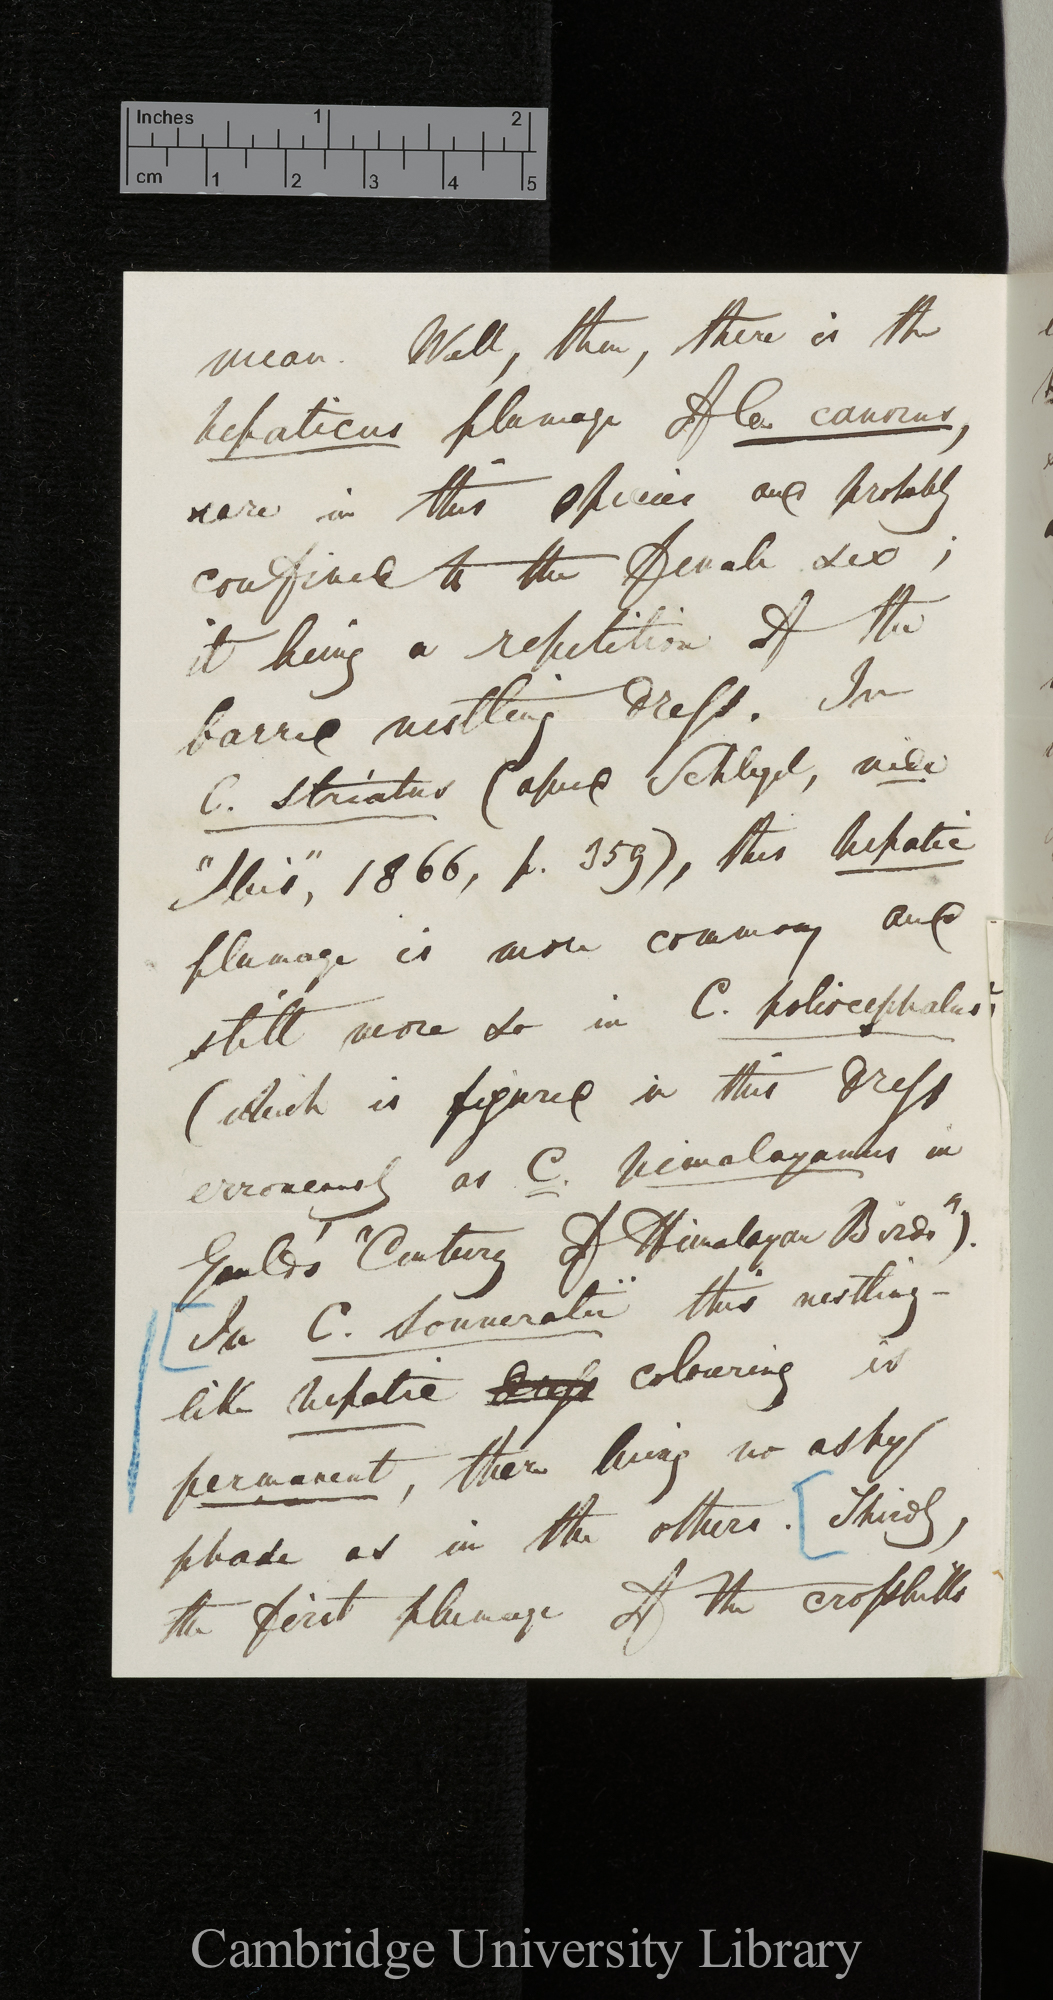 Inches 1 2
cm 1 2 3 4 5
mean. Well, then, there is the
hepaticus plumage of Cu. canorus,
rare in this species and probably
confined to the female sex;
it being a repetition of the
barred nestling dress. In
C. striatus (apud Schlegel, vide
"Ibis", 1866, p. 359), this hepatic
plumage is more common, and
still more so in C. poliocephalus;
(which is figured in this dress
erroneously as C. himalayanus in
Gould's "Century of Himalayan Birds").
[In C. sonneratii this nestling-
like hepatic dress colouring is
permanent, there being no ashy
phase as in the others. [Thirdly,
the first plumage of the crossbills
Cambridge University Library